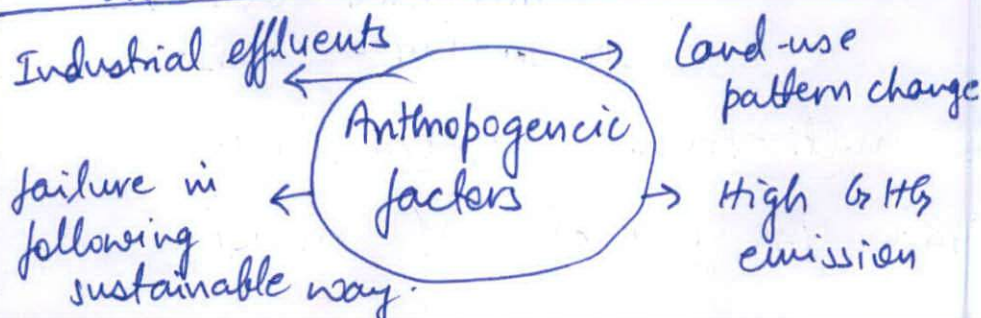 Industrial effluents
Land-use
pattern change
Anthropogencic
factors
failure in
following
sustainable way.
High GHG
emission